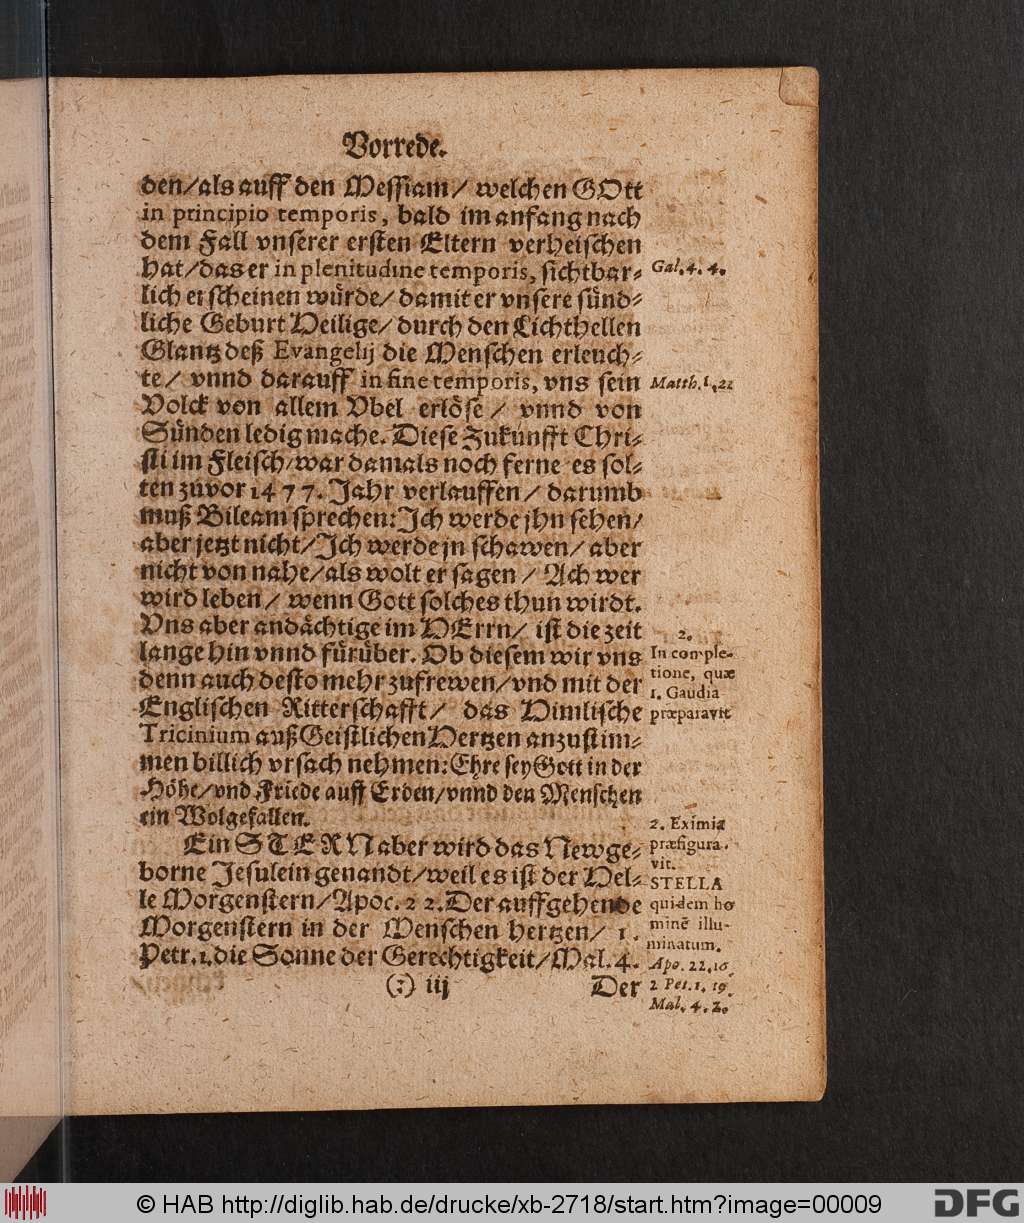 Vorrede.
den/als auff den Messiam/ welchen GOtt
in principio temporis, bald im anfang nach
dem Fall vnserer ersten Eltern verheischen
hat/das er in plenitudine temporis, sichtbar-
Gal. 4. 4.
lich erscheinen wuͤrde/damit er vnsere suͤnd-
liche Geburt Heilige/durch den Lichthellen
Glantz deß Evangelij die Menschen erleuch-
te/ vnnd darauff in fine temporis, vns sein
Matth. 1, 21
Volck von allem Vbel erloͤse/ vnnd von
Suͤnden ledig mache. Diese Zukunfft Chri-
sti im Fleisch/war damals noch ferne es sol-
ten zuvor 1477. Jahr verlauffen/ darumb
muß Bileam sprechen: Ich werde jhn sehen/
aber jetzt nicht/Ich werde jn schawen/ aber
nicht von nahe/als wolt er sagen/ Ach wer
wird leben/ wenn Gott solches thun wirdt.
Vns aber andaͤchtige im HErrn/ ist die zeit
lange hin vnnd fuͤruͤber. Ob diesem wir vns
denn auch desto mehr zufrewen/vnd mit der
Englischen Ritterschafft/ das Himlische
Tricinium auß Geistlichen Hertzen anzustim-
men billich vrsach nehmen: Ehre sey Gott in der
Höhe/vnd Friede auff Erden/vnnd den Menschen
ein Wolgefallen.
2.
In comple-
tione, quæ
1. Gaudia
præparavit
Ein STERN aber wird das Newge-
borne Jesulein genandt/weil es ist der Hel-
le Morgenstern/Apoc. 22. Der auffgehende
Morgenstern in der Menschen hertzen/ 1.
Petr. 1. die Sonne der Gerechtigkeit/Mal. 4.
2. Eximia
præfigura.
vit.
STELLA
quidem ho
minē illu-
minatum.
Apo. 22. 16.
2 Pet. 1. 19.
Mal. 4. 2.
(:) iij
Der
© HAB http://diglib.hab.de/drucke/xb-2718/start.htm?image=00009
DFG